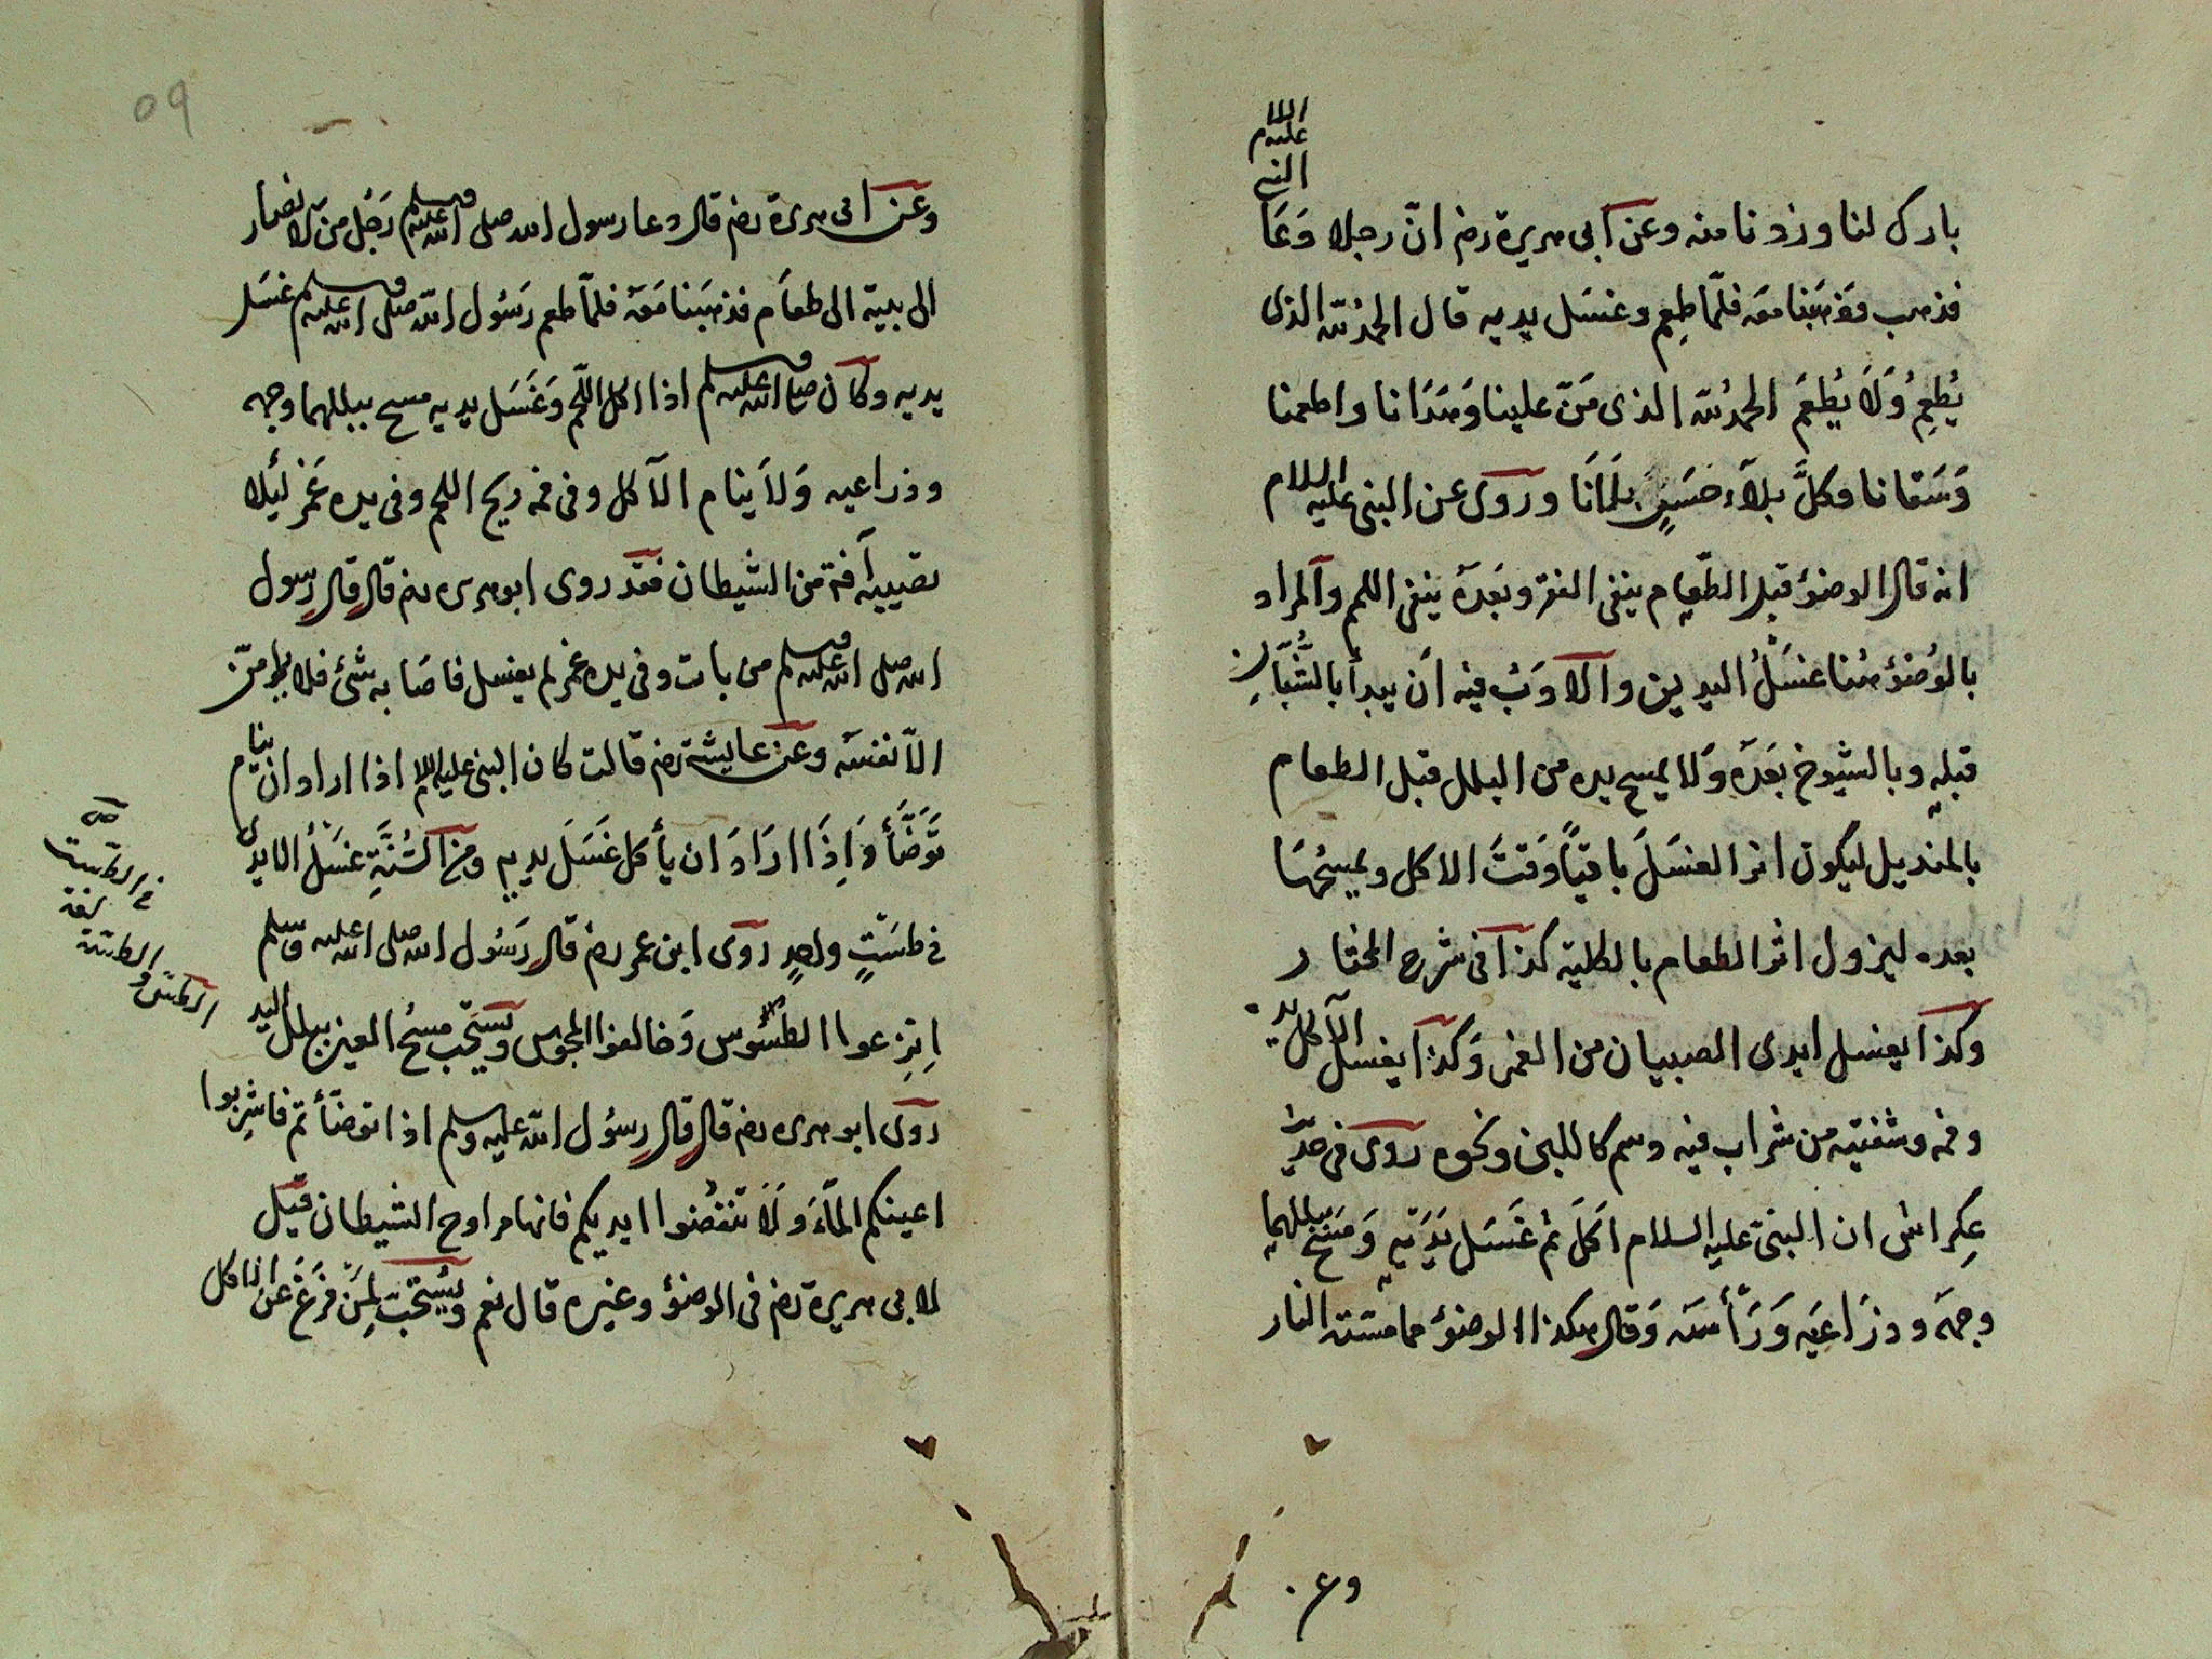 بارك لنا وزدنا منه وعن ابى هريرة رضـ انّ رجلا دَعَا النبي عليه السلام
فذهب فذهَبنا معه فلمّا طعِم وغسَل يديه قال الحمدُ لله الذى
يُطعِمُ وَلَا يُطعَم الحمدُ لله الذى مَنّ علينا وَهَدَانا واطعمنا
وَسَقانا وكلَّ بلآء حَسَنٍ بلَانَا وروى عن النبى عليه السلام
انه قال الوضوُ قبل الطّعام ينفى الفقر وبَعدَهُ ينفى اللمم والمراد
بالوُضوُ هُنا غسْلُ اليدين والادَبُ فيه اَن يبدأ بالشُّبَّانِ
قبله وبالشيوخ بَعَدَه وَلا يمسح يده من البلل قبل الطعام
بالمنديل ليكون اثر الغسَلَ باقيًا وَقتَ الاكل ويمسَحُهَا
بعده ليزول اثر الطعام بالكلية كذا فى شرح المختار
وكذا يغسل ايدى الصبيان من الغمر وَكذا يغسل الآكل يد
وفمه وشفتيه من شراب فيه دسم كاللبن ونحوه روى فى حديث
عِكراش ان النبىّ عليه السلام اَكَلَ ثم غَسَل يَدَيه وَمَسَحَ ببللهما
وجهَه وذرَاعيَه وَرَأسَه وَقال هكذا الوضوُ مما مسّته النار
وعن
٥٩
وعن ابى هريرة رضـ قال دعا رسول الله صلى الله عليه وسلم رَجُل من الانصار
الى بيته الى طعَام فذهبَنا مَعَهُ فلمّا طعم رَسُول الله صلى الله عليه وسلم غسَل
يديه وكان صلى الله عليه وسلم اذا اكل اللّحم وَغَسَل يديه مسح ببللهما وجهه
وذراعيه وَلَا ينام الآكل وفى فمه ريح اللحم وفى يده غَمَر لئَلا
تصيبه آفة من الشيطان فقد روى ابو هريره رضـ قال قال رسول
الله صلى الله عليه وسلم من بات وفى يده غمر لم يغسل فاصَابه شئ فلا يلومنّ
الّا نفسَه وعن عايشة رضـ قالت كان النبى عليه السلام اذا اراد ان ينام
تَوَضَّأَ وَاِذَا ارَادَ ان يأكل غَسَلَ يديه ومن السُّنَّةِ غسَلُ الايدى
فى طسَتٍ واحدٍ روى ابن عمر رضـ قال رَسُول الله صلى الله عليه وسلم
اِتِرعوا الطسُوس وَخالفوا المجوس ويستحب مسحُ العين ببلل اليد
روى ابو هريره رضـ قال قال رسوُل الله عليه وسلم اذا توضّأتم فاشربوا
اعينكم المآءَ وَلَا تنفضوا ايديكم فانها مراوح الشيطان قيل
لابى هريرة رضـ فى الوضوُ وغيره قال نعم ويُستحَبّ لِمَن فَرَغَ عن الاكل
الطسّ و الطسّة
لغة
فى الطست